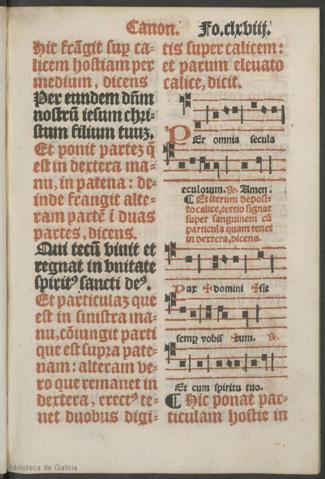 Canon. Fo.clxviij.
Hic frãgit sup̱ ca-
licem hostiam per
medium, dicens
Per eundem dñm
nostrũ iesum chri-
stum filium tuuz.
Et ponit partez q̃
est in dextera ma-
nu, in patena: de-
inde frangit alte-
ram partẽ ĩ duas
partes, dicens.
Qui tecũ viuit et
regnat in vnitate
spiritꝰ sancti deꝰ.
Et particulaz que
est in sinistra ma-
nu, cõiungit parti
que est supra pate-
nam: alteram ve-
ro que remanet in
dextera, erectꝰ te-
net duobus digi-
tis super calicem:
et parum eleuato
calice, dicit.
PEr omnia secula
seculorum. ℟. Amen.
¶ Et iterum deposi-
to calice, tertio signat
super sanguinem cũ
particula quam tenet
in dextera, dicens.
Pax ✠ domini ✠ sit
semp̱ vobis ✠ cum. ℟.
Et cum spiritu tuo.
¶ Hic ponat par-
ticulam hostie in
Biblioteca de Galicia